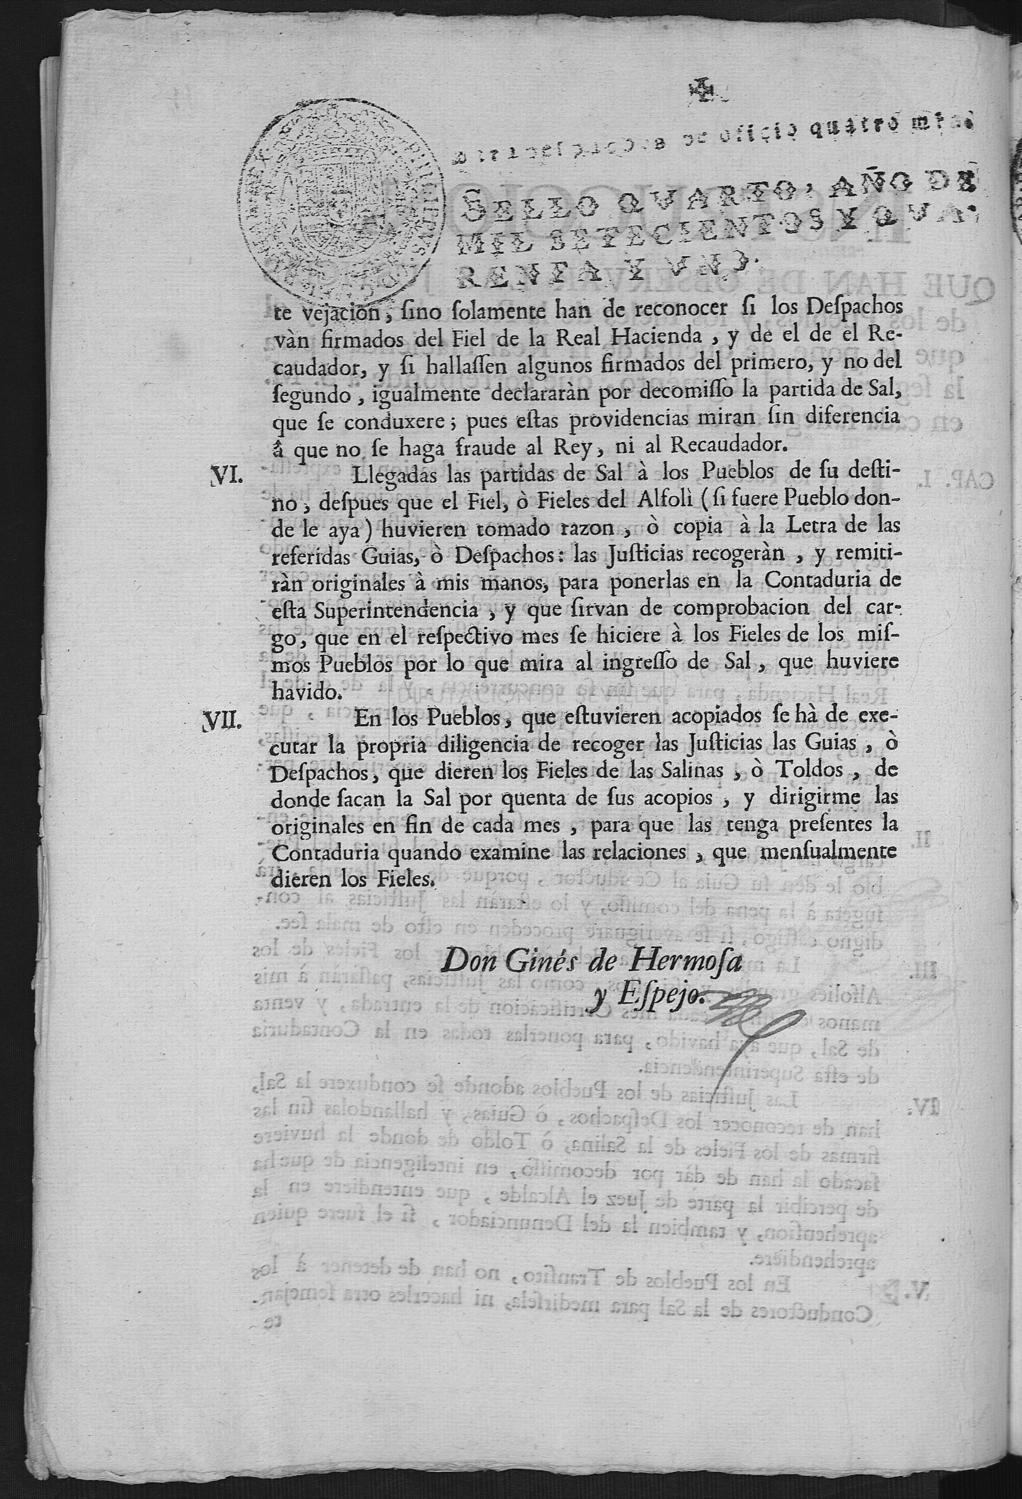 Para despachos de oficio quatro mrs.
SELLO QVARTO, AÑO DE
MIL SETECIENTOS Y QVA-
RENTA Y VNO.
te vejacion, ſino ſolamente han de reconocer ſi los Deſpachos
vàn firmados del Fiel de la Real Hacienda, y de el de el Re-
caudador, y ſi hallaſſen algunos firmados del primero, y no del
ſegundo, igualmente declararàn por decomiſſo la partida de Sal,
que ſe conduxere; pues eſtas providencias miran ſin diferencia
à que no ſe haga fraude al Rey, ni al Recaudador.
VI. Llegadas las partidas de Sal à los Pueblos de ſu deſti-
no, deſpues que el Fiel, ò Fieles del Alfolì (ſi fuere Pueblo don-
de le aya) huvieren tomado razon, ò copia à la Letra de las
referidas Guias, ò Deſpachos: las Juſticias recogeràn, y remiti-
ràn originales à mis manos, para ponerlas en la Contaduria de
eſta Superintendencia, y que ſirvan de comprobacion del car-
go, que en el reſpectivo mes ſe hiciere à los Fieles de los miſ-
mos Pueblos por lo que mira al ingreſſo de Sal, que huviere
havido.
VII. En los Pueblos, que eſtuvieren acopiados ſe hà de exe-
cutar la propria diligencia de recoger las Juſticias las Guias, ò
Deſpachos, que dieren los Fieles de las Salinas, ò Toldos, de
donde ſacan la Sal por quenta de ſus acopios, y dirigirme las
originales en fin de cada mes, para que las tenga preſentes la
Contaduria quando examine las relaciones, que menſualmente
dieren los Fieles.
Don Ginés de Hermoſa
y Eſpejo.